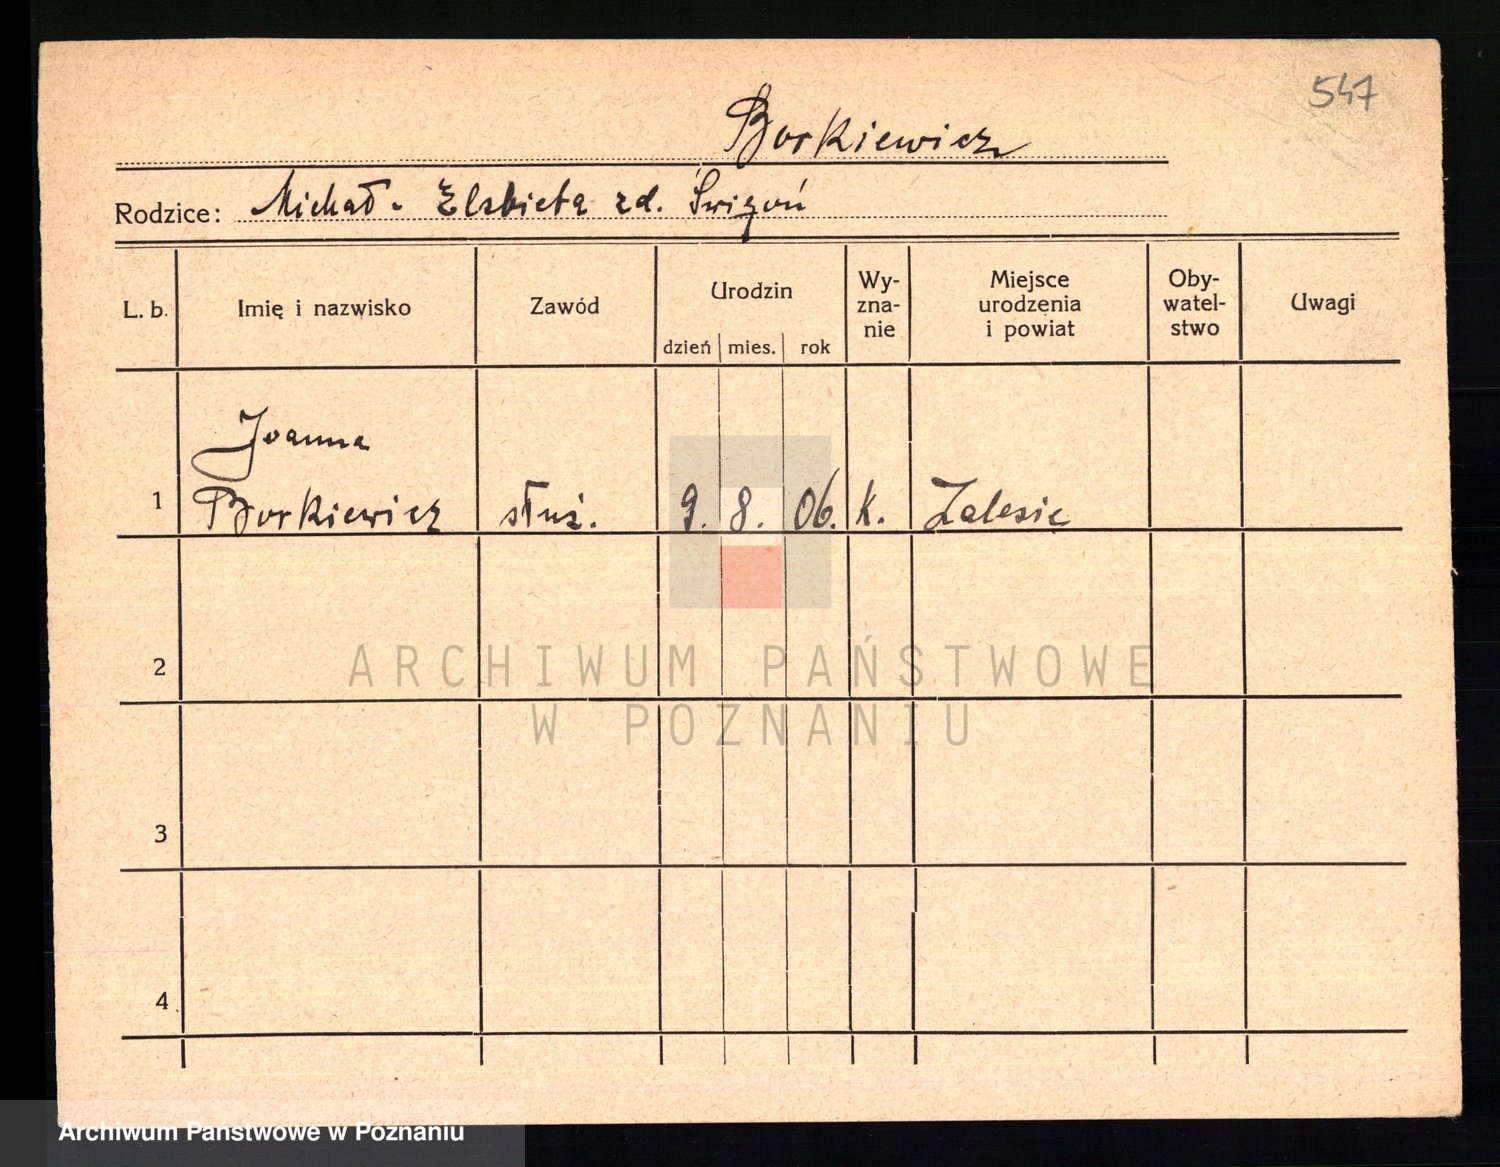 547
Borkiewicz
Rodzice: Michał - Elżbieta zd. Świgoń
L. b.
Imię i nazwisko
Zawód
Urodzin
dzień mies. rok
Wy-
zna-
nie
Miejsce
urodzenia
i powiat
Oby-
watel-
stwo
Uwagi
Joanna
1 Borkiewicz służ. 9. 8. 06. k. Zalesie
2
ARCHIWUM PAŃSTWOWE
W POZNANIU
3
4
Archiwum Państwowe w Poznaniu